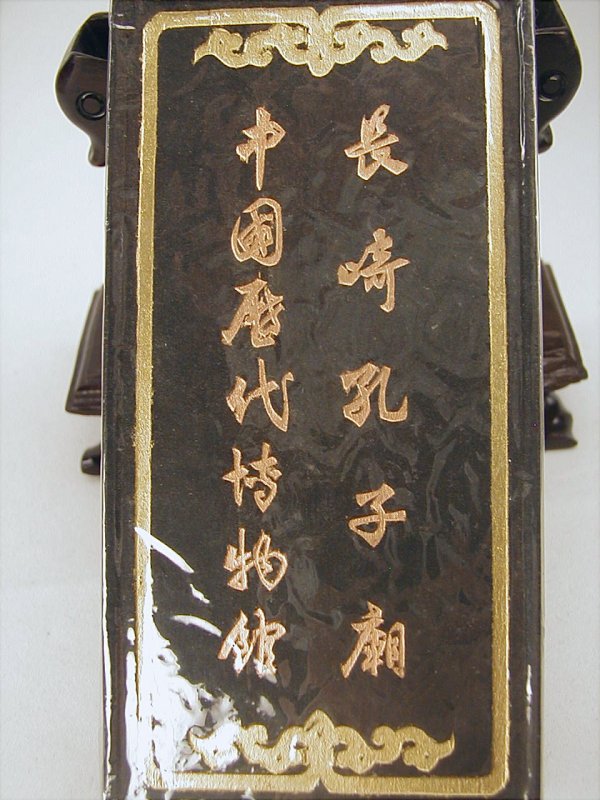 長崎孔子廟
中国歴代博物館